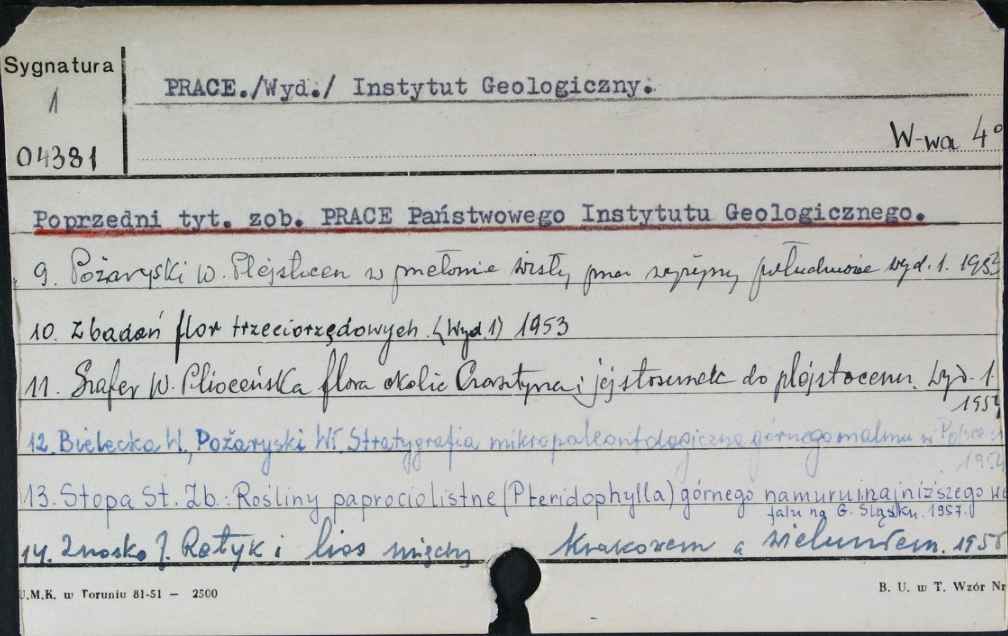 Sygnatura
1
04381
PRACE./Wyd./ Instytut Geologiczny.
W-wa 4°
Poprzedni tyt. zob. PRACE Państwowego Instytutu Geologicznego.
9. Pożaryski W. Plejstocen w przełomie Wisły przez wyżyny południowe wyd. 1. 1953
10. Z badań flor trzeciorzędowych. (Wyd. 1) 1953
11. Szafer W. Plioceńska flora okolic Czorsztyna i jej stosunek do plejstocenu. Wyd. 1.
12. Bielecka W., Pożaryski Wł. Stratygrafia mikropaleontologiczna górnego malmu w Polsce
13. Stopa St. Zb.: Rośliny paprociolistne (Pteridophylla) górnego namuru i najniższego
falu na G. Śląsku. 1957.
14. Znosko J. Retyk i lias między Krakowem a Wieluniem.
U.M.K. w Toruniu 81-51 — 2500
B. U. w T. Wzór Nr